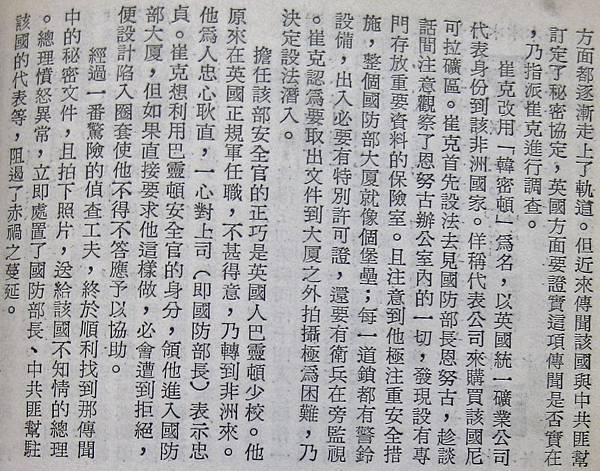 方面都逐漸走上了軌道。但近來傳聞該國與中共匪幫
訂定了秘密協定，英國方面要證實這項傳聞是否實在
，乃指派崔克進行調查。
崔克改用「韓密頓」爲名，以英國統一礦業公司
代表身份到該非洲國家。佯稱代表公司來購買該國尼
可拉礦區。崔克首先設法去見國防部長恩努古，趁談
話間注意觀察了恩努古辦公室內的一切，發現設有專
門存放重要資料的保險室。且注意到他極注重安全措
施，整個國防部大厦就像個堡壘；每一道鎖都有警鈴
設備，出入必要有特別許可證，還要有衛兵在旁監視
。崔克認爲要取出文件到大厦之外拍攝極爲困難，乃
決定設法潛入。
擔任該部安全官的正巧是英國人巴靈頓少校。他
原來在英國正規軍任職，不甚得意，乃轉到非洲來。
他爲人忠心耿直，一心對上司（即國防部長）表示忠
貞。崔克想利用巴靈頓安全官的身分，領他進入國防
部大厦，但如果直接要求他這樣做，必會遭到拒絕，
便設計陷入圈套使他不得不答應予以協助。
經過一番驚險的偵查工夫，終於順利找到那傳聞
中的秘密文件，且拍下照片，送給該國不知情的總理
。總理憤怒異常，立即處置了國防部長、中共匪幫駐
該國的代表等，阻遏了赤禍之蔓延。